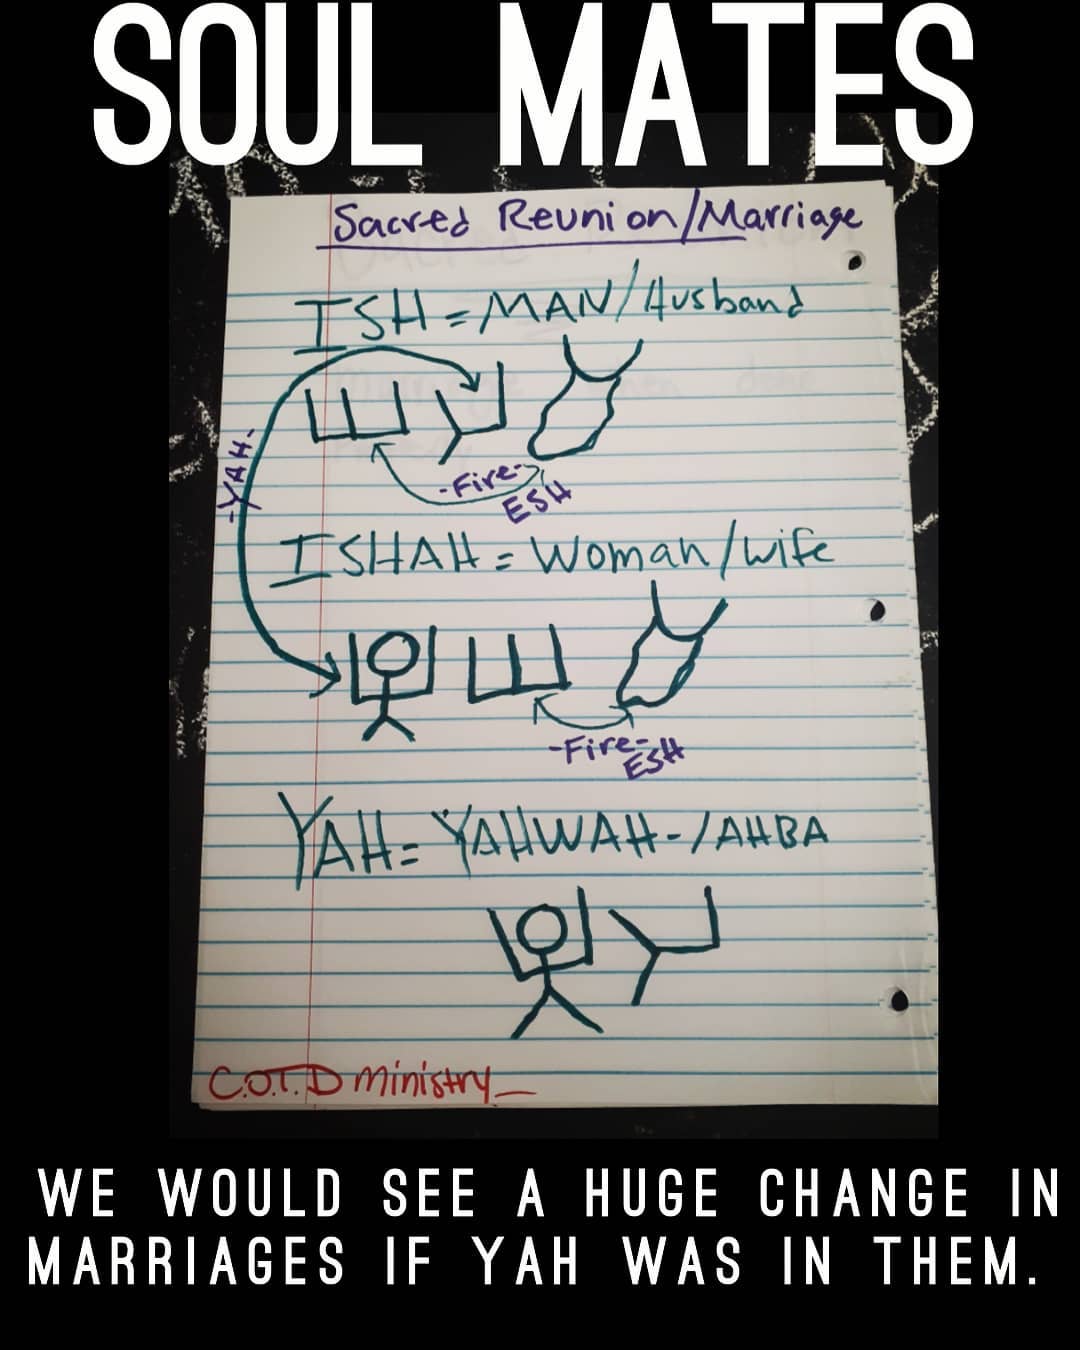 SOUL MATES
Sacred Reunion/Marriage
ISH = MAN/Husband
-YAH-
-Fire-
ESH
ISHAH = Woman/wife
-Fire-
ESH
YAH = YAHWAH-/AHBA
C.O.T.D ministry_
WE WOULD SEE A HUGE CHANGE IN
MARRIAGES IF YAH WAS IN THEM.